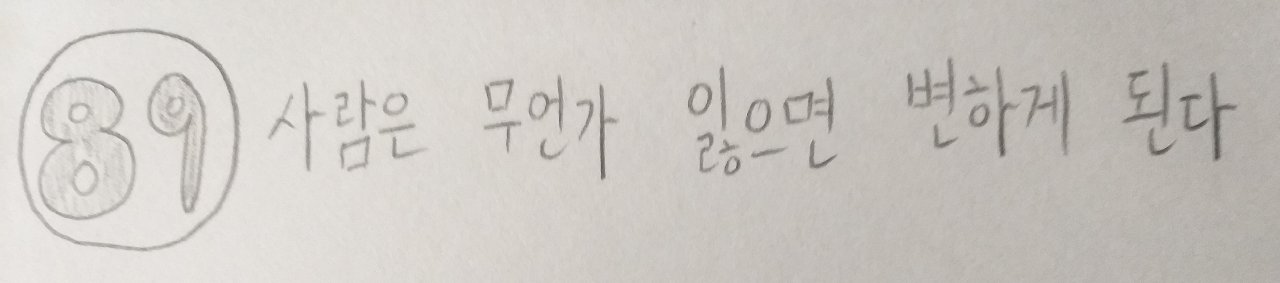 89 사람은 무언가 잃으면 변하게 된다